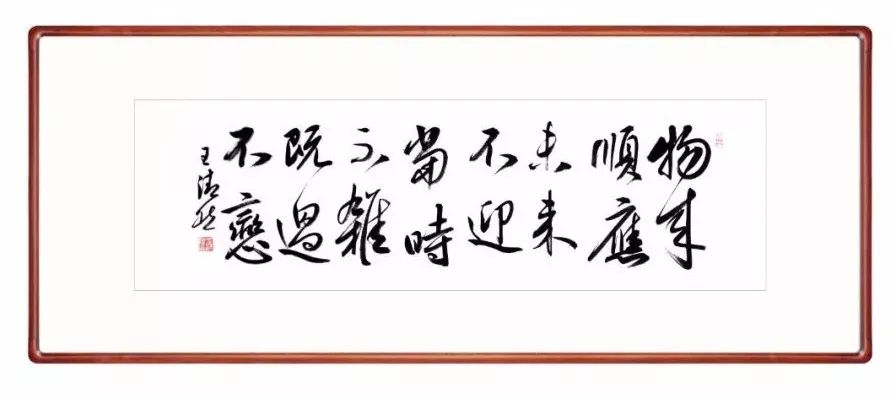 物來
順應
未来
不迎
當時
不雜
既過
不戀
王清